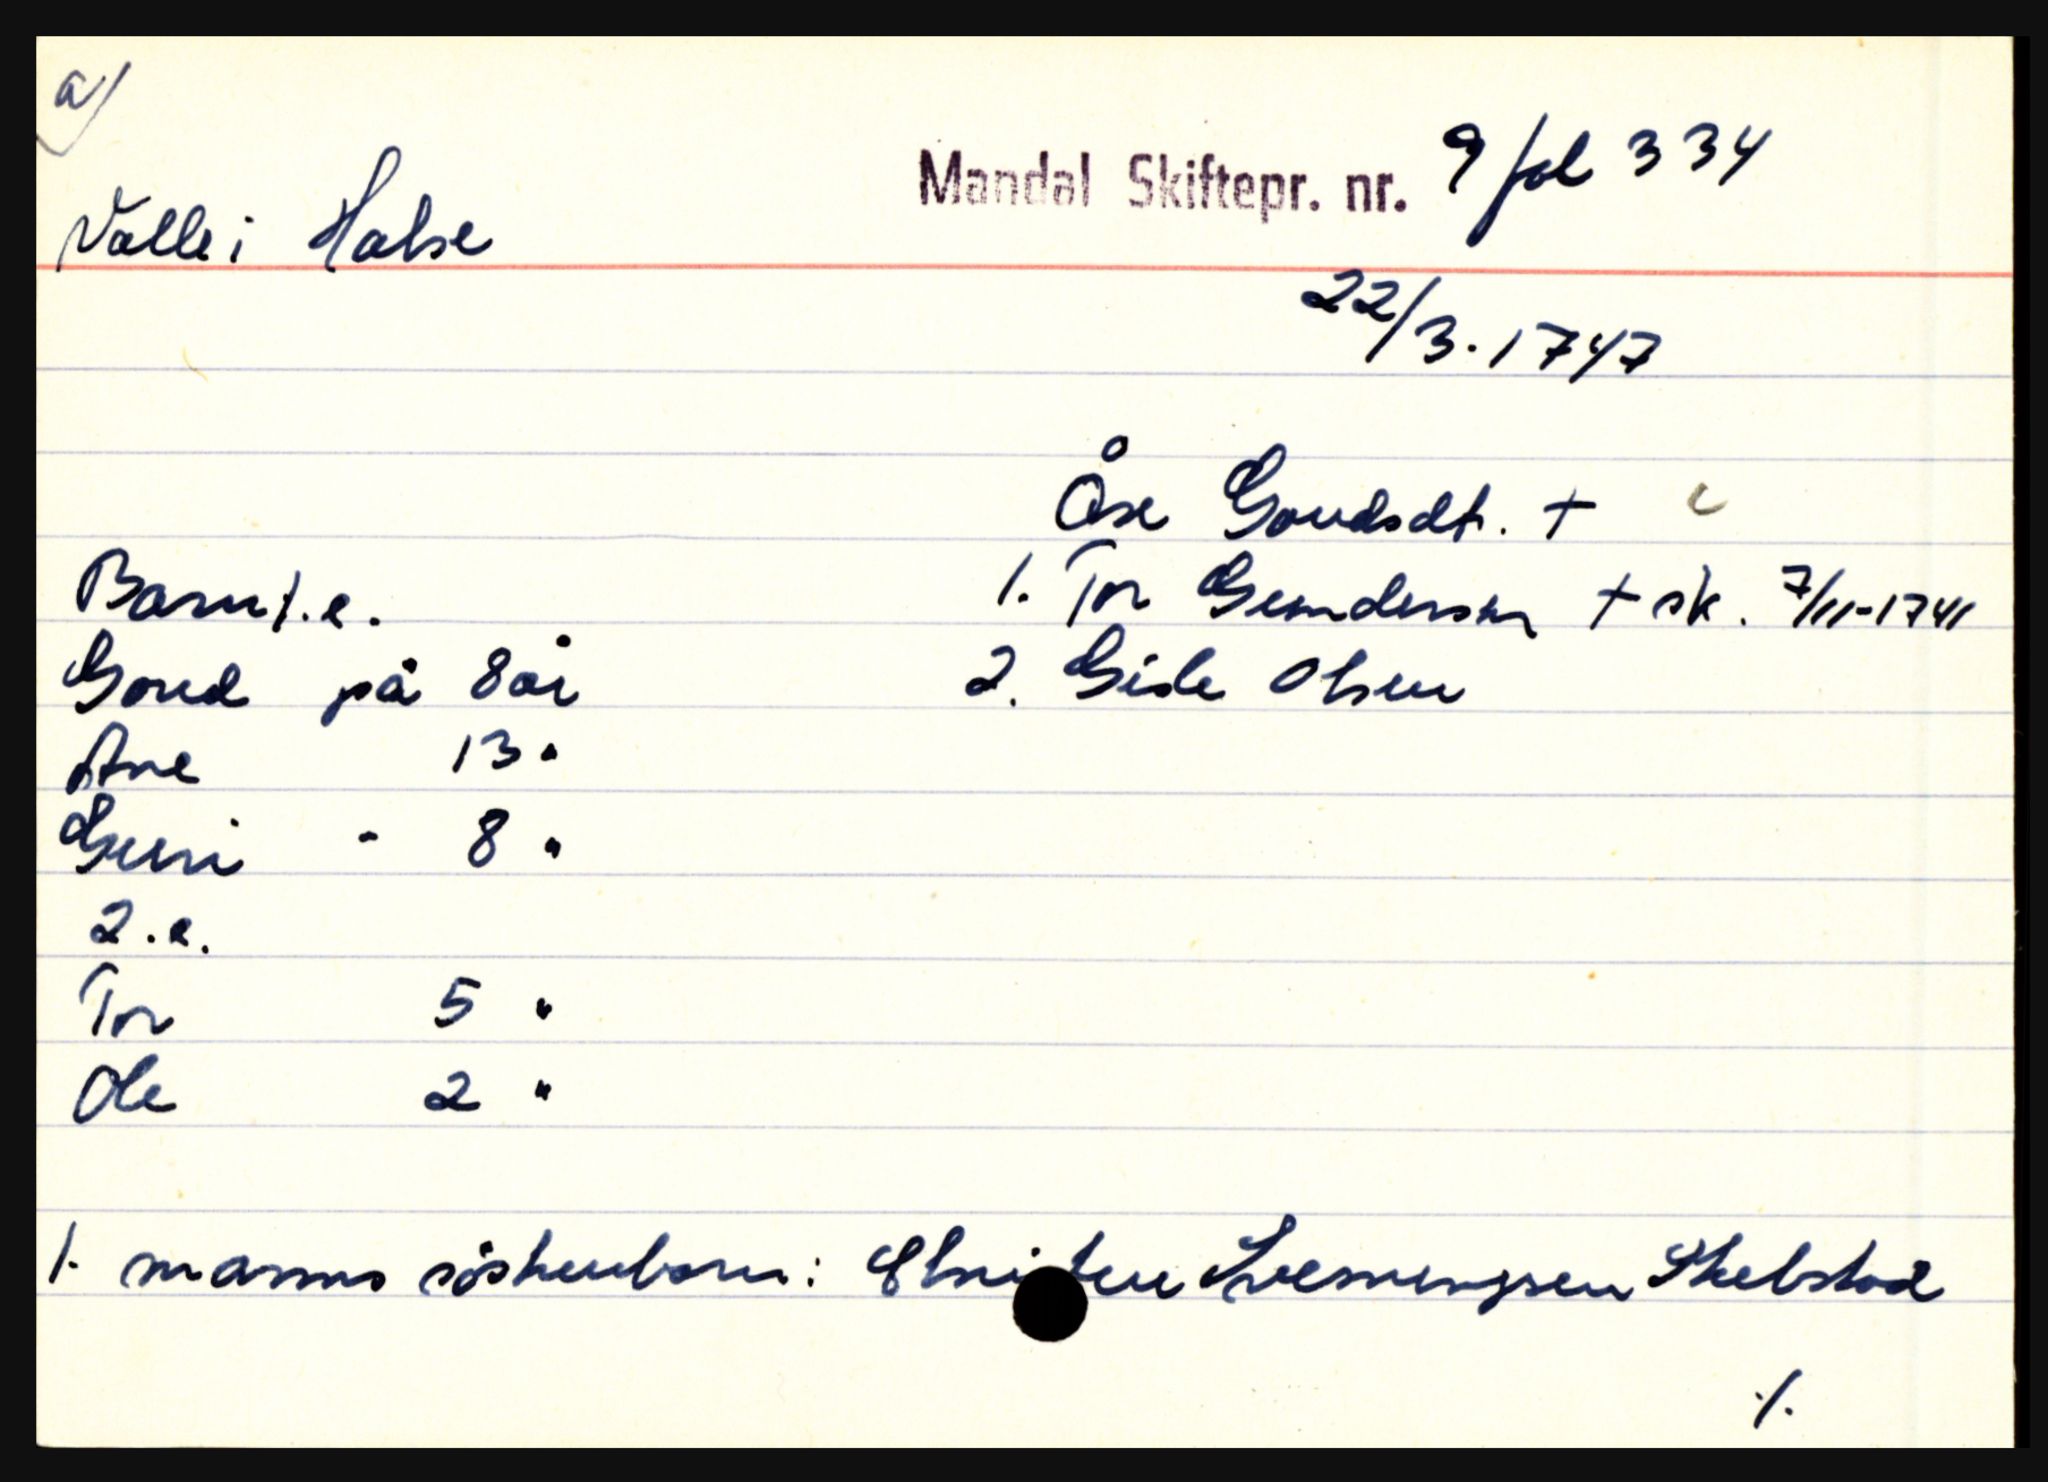 a/
Mandal Skiftepr. nr. 9 fol 334
Valle i Halse
22/3. 1747
Åse Goudsdt. +
Barn 1. e.
1. Tor Gundersen + sk. 7/11-1741
Goud på 8 år
2. Gisle Olsen
Ane 13 "
Guri - 8 "
2. e.
Tor 5 "
Ole 2 "
1. manns söskenbarn: Tvenningsen Skelstad
./.